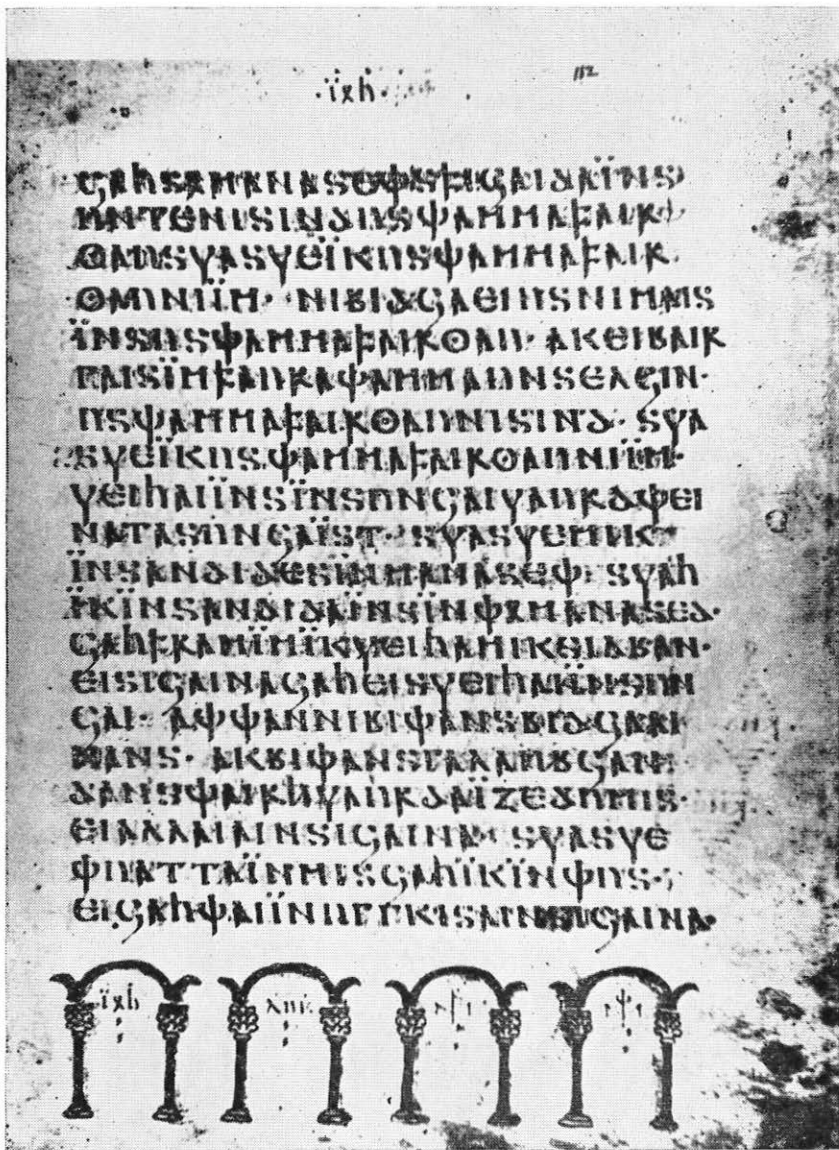 ·𐌹̈𐍉𐌷·
112
𐌾𐌰𐌷𐍃𐍉𐌼𐌰𐌽𐌰𐍃𐌴𐌸𐍃𐍆𐌹𐌾𐌰𐌹𐌳𐌰𐌹̈𐌽𐍃
𐌿𐌽𐍄𐌴𐌽𐌹𐍃𐌹𐌽𐌳𐌿𐍃𐌸𐌰𐌼𐌼𐌰𐍆𐌰𐌹𐍂
𐍈𐌰𐌿𐍃𐍅𐌰𐍃𐍅𐌴𐌹̈𐌺𐌿𐍃𐌸𐌰𐌼𐌼𐌰𐍆𐌰𐌹𐍂
𐍈𐌰𐌿𐌽𐌹𐌹̈𐌼· 𐌽𐌹𐌱𐌹𐌳𐌾𐌰𐌴𐌹𐌿𐍃𐌽𐌹𐌼𐌰𐌹𐍃
𐌹̈𐌽𐍃𐌿𐍃𐌸𐌰𐌼𐌼𐌰𐍆𐌰𐌹𐍂𐍈𐌰𐌿· 𐌰𐌺𐌴𐌹𐌱𐌰𐌹𐍂
𐌲𐌰𐌹𐍃𐌹̈𐌼𐍆𐌰𐌿𐍂𐌰𐌸𐌰𐌼𐌼𐌰𐌿𐌽𐍃𐌴𐌻𐌾𐌹𐌽·
𐌿𐍃𐌸𐌰𐌼𐌼𐌰𐍆𐌰𐌹𐍂𐍈𐌰𐌿𐌽𐌹𐍃𐌹𐌽𐌳· 𐍃𐍅𐌰
𐍃𐍅𐌴𐌹̈𐌺𐌿𐍃𐌸𐌰𐌼𐌼𐌰𐍆𐌰𐌹𐍂𐍈𐌰𐌿𐌽𐌹𐌹̈𐌼·
𐍅𐌴𐌹𐌷𐌰𐌹𐌹̈𐌽𐍃𐌹̈𐌽𐍃𐌿𐌽𐌾𐌰𐌹𐍅𐌰𐌿𐍂𐌳𐌸𐌴𐌹
𐌽𐌰𐍄𐌰𐍃𐌿𐌽𐌾𐌰𐌹̈𐍃𐍄· 𐍃𐍅𐌰𐍃𐍅𐌴𐌼𐌹𐌺
𐌹̈𐌽𐍃𐌰𐌽𐌳𐌹𐌳𐌴𐍃𐌹̈𐌽𐌼𐌰𐌽𐌰𐍃𐌴𐌸· 𐍃𐍅𐌰𐌷
𐌹̈𐌺𐌹̈𐌽𐍃𐌰𐌽𐌳𐌹𐌳𐌰𐌹̈𐌽𐍃𐌹̈𐌽𐌸𐍉𐌼𐌰𐌽𐌰𐍃𐌴𐌳·
𐌾𐌰𐌷𐍆𐍂𐌰𐌼𐌹̈𐌼𐌹̈𐌺𐍅𐌴𐌹𐌷𐌰𐌼𐌹𐌺𐍃𐌹𐌻𐌱𐌰𐌽·
𐌴𐌹𐍃𐌹𐌾𐌰𐌹𐌽𐌰𐌾𐌰𐌷𐌴𐌹𐍃𐍅𐌴𐌹𐌷𐌰𐌹𐌹̈𐌽𐍃𐌿𐌽
𐌾𐌰𐌹· 𐌰𐌸𐌸𐌰𐌽𐌽𐌹𐌱𐌹𐌸𐌰𐌽𐍃𐌱𐌹𐌳𐌾𐌰𐌰𐌹
𐌽𐌰𐌽𐍃· 𐌰𐌺𐌱𐌹𐌸𐌰𐌽𐍃𐌲𐌰𐌻𐌰𐌿𐌱𐌾𐌰𐌽
𐌳𐌰𐌽𐍃𐌸𐌰𐌹𐍂𐌷𐍅𐌰𐌿𐍂𐌳𐌰𐌹̈𐌶𐌴𐌳𐌿𐌼𐌹𐍃·
𐌴𐌹𐌰𐌻𐌻𐌰𐌹𐌰𐌹𐌽𐍃𐌹𐌾𐌰𐌹𐌽𐌰· 𐍃𐍅𐌰𐍃𐍅𐌴
𐌸𐌿𐌰𐍄𐍄𐌰𐌹̈𐌽𐌼𐌹𐍃𐌾𐌰𐌷𐌹̈𐌺𐌹̈𐌽𐌸𐌿𐍃·
𐌴𐌹𐌾𐌰𐌷𐌸𐌰𐌹𐌹̈𐌽𐌿𐌲𐌲𐌺𐌹𐍃𐌰𐌹𐌽𐍃𐌹𐌾𐌰𐌹𐌽𐌰·
𐌹̈𐍉𐌷 𐌻𐌿𐌺